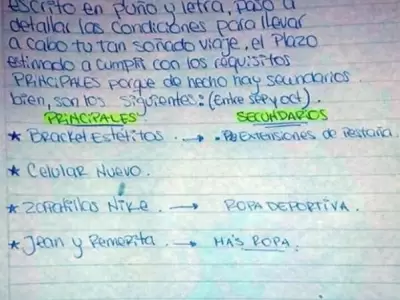 escrito en puño y letra, paso a
detallar las condiciones para llevar
a cabo tu tan soñado viaje, el plazo
estimado a cumplir con los requisitos
PRINCIPALES porque de hecho hay secundarios
bien, son los siguientes: (Entre sep y oct).
PRINCIPALES SECUNDARIOS
* Bracket Estetitos. → EXTENSIONES de Pestaña.
* Celular Nuevo.
* Zapatillas Nike. → ROPA DEPORTIVA.
* Jean y Remerita. → MAS ROPA.